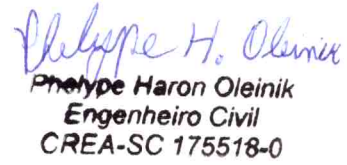 Phelype H. Oleinik
Phelype Haron Oleinik
Engenheiro Civil
CREA-SC 175518-0